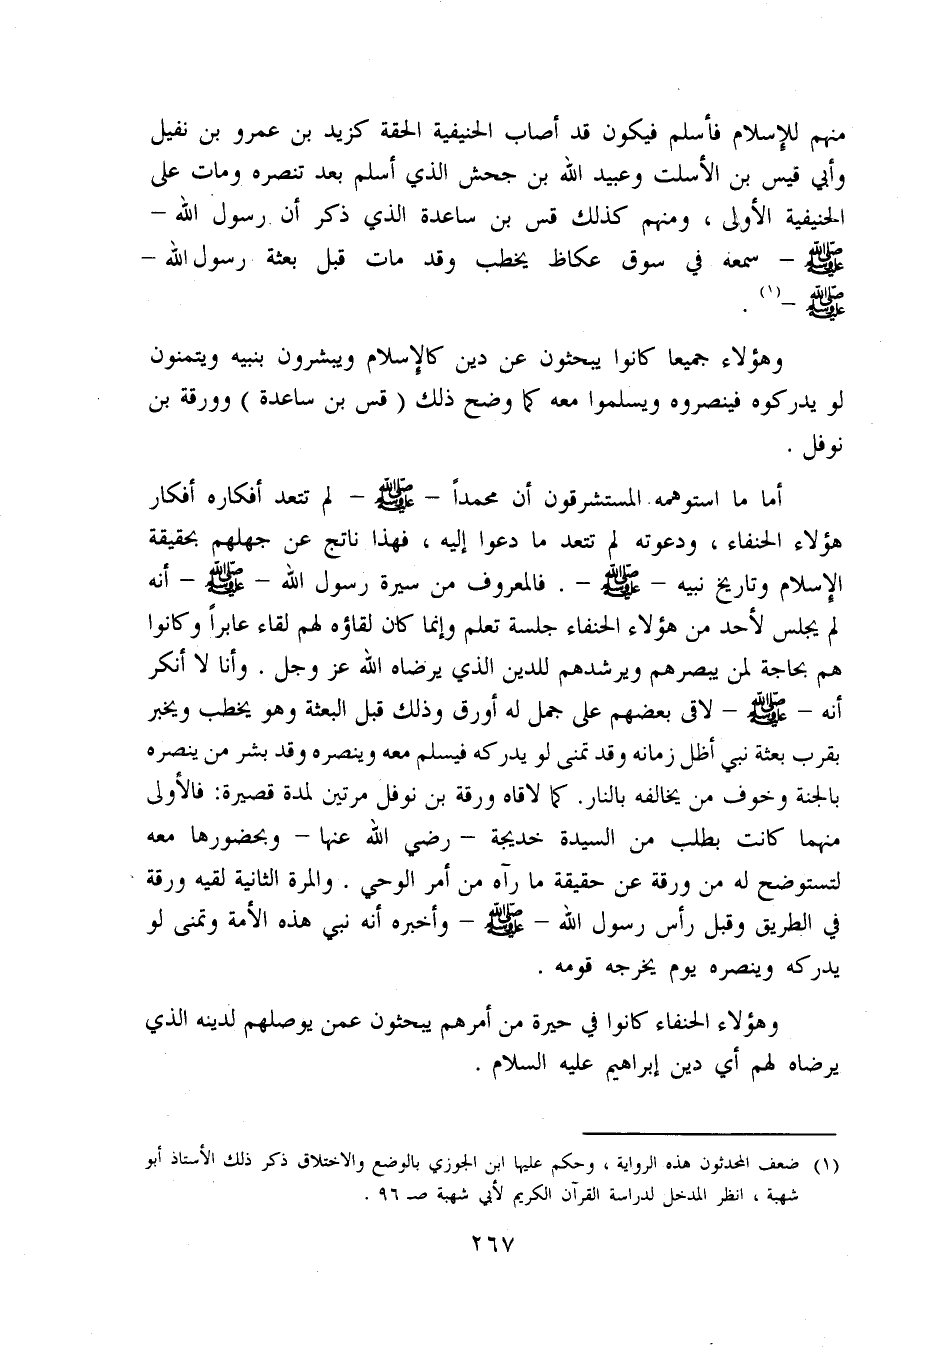 منهم للإسلام فأسلم فيكون قد أصاب الحنيفية الحقة كزيد بن عمرو بن نفيل
وأبي قيس بن الأسلت وعبيد الله بن جحش الذي أسلم بعد تنصره ومات على
الحنيفية الأولى ، ومنهم كذلك قس بن ساعدة الذي ذكر أن رسول الله –
ﷺ – سمعه في سوق عكاظ يخطب وقد مات قبل بعثة رسول الله –
ﷺ –(١) .
وهؤلاء جميعا كانوا يبحثون عن دين كالإسلام ويبشرون بنبيه ويتمنون
لو يدركوه فينصروه ويسلموا معه كما وضح ذلك ( قس بن ساعدة ) وورقة بن
نوفل .
أما ما استوهمه المستشرقون أن محمداً – ﷺ – لم تتعد أفكاره أفكار
هؤلاء الحنفاء ، ودعوته لم تتعد ما دعوا إليه ، فهذا ناتج عن جهلهم بحقيقة
الإسلام وتاريخ نبيه – ﷺ – . فالمعروف من سيرة رسول الله – ﷺ – أنه
لم يجلس لأحد من هؤلاء الحنفاء جلسة تعلم وإنما كان لقاؤه لهم لقاء عابراً وكانوا
هم بحاجة لمن يبصرهم ويرشدهم للدين الذي يرضاه الله عز وجل . وأنا لا أنكر
أنه – ﷺ – لاقى بعضهم على جمل له أورق وذلك قبل البعثة وهو يخطب ويخبر
بقرب بعثة نبي أظل زمانه وقد تمنى لو يدركه فيسلم معه وينصره وقد بشر من ينصره
بالجنة وخوف من يخالفه بالنار. كما لاقاه ورقة بن نوفل مرتين لمدة قصيرة: فالأولى
منهما كانت بطلب من السيدة خديجة – رضي الله عنها – وبحضورها معه
لتستوضح له من ورقة عن حقيقة ما رآه من أمر الوحي . والمرة الثانية لقيه ورقة
في الطريق وقبل رأس رسول الله – ﷺ – وأخبره أنه نبي هذه الأمة وتمنى لو
يدركه وينصره يوم يخرجه قومه .
وهؤلاء الحنفاء كانوا في حيرة من أمرهم يبحثون عمن يوصلهم لدينه الذي
يرضاه لهم أي دين إبراهيم عليه السلام .
(١) ضعف المحدثون هذه الرواية ، وحكم عليها ابن الجوزي بالوضع والاختلاق ذكر ذلك الأستاذ أبو
شهبة ، انظر المدخل لدراسة القرآن الكريم لأبي شهبة صـ ٩٦ .
٢٦٧